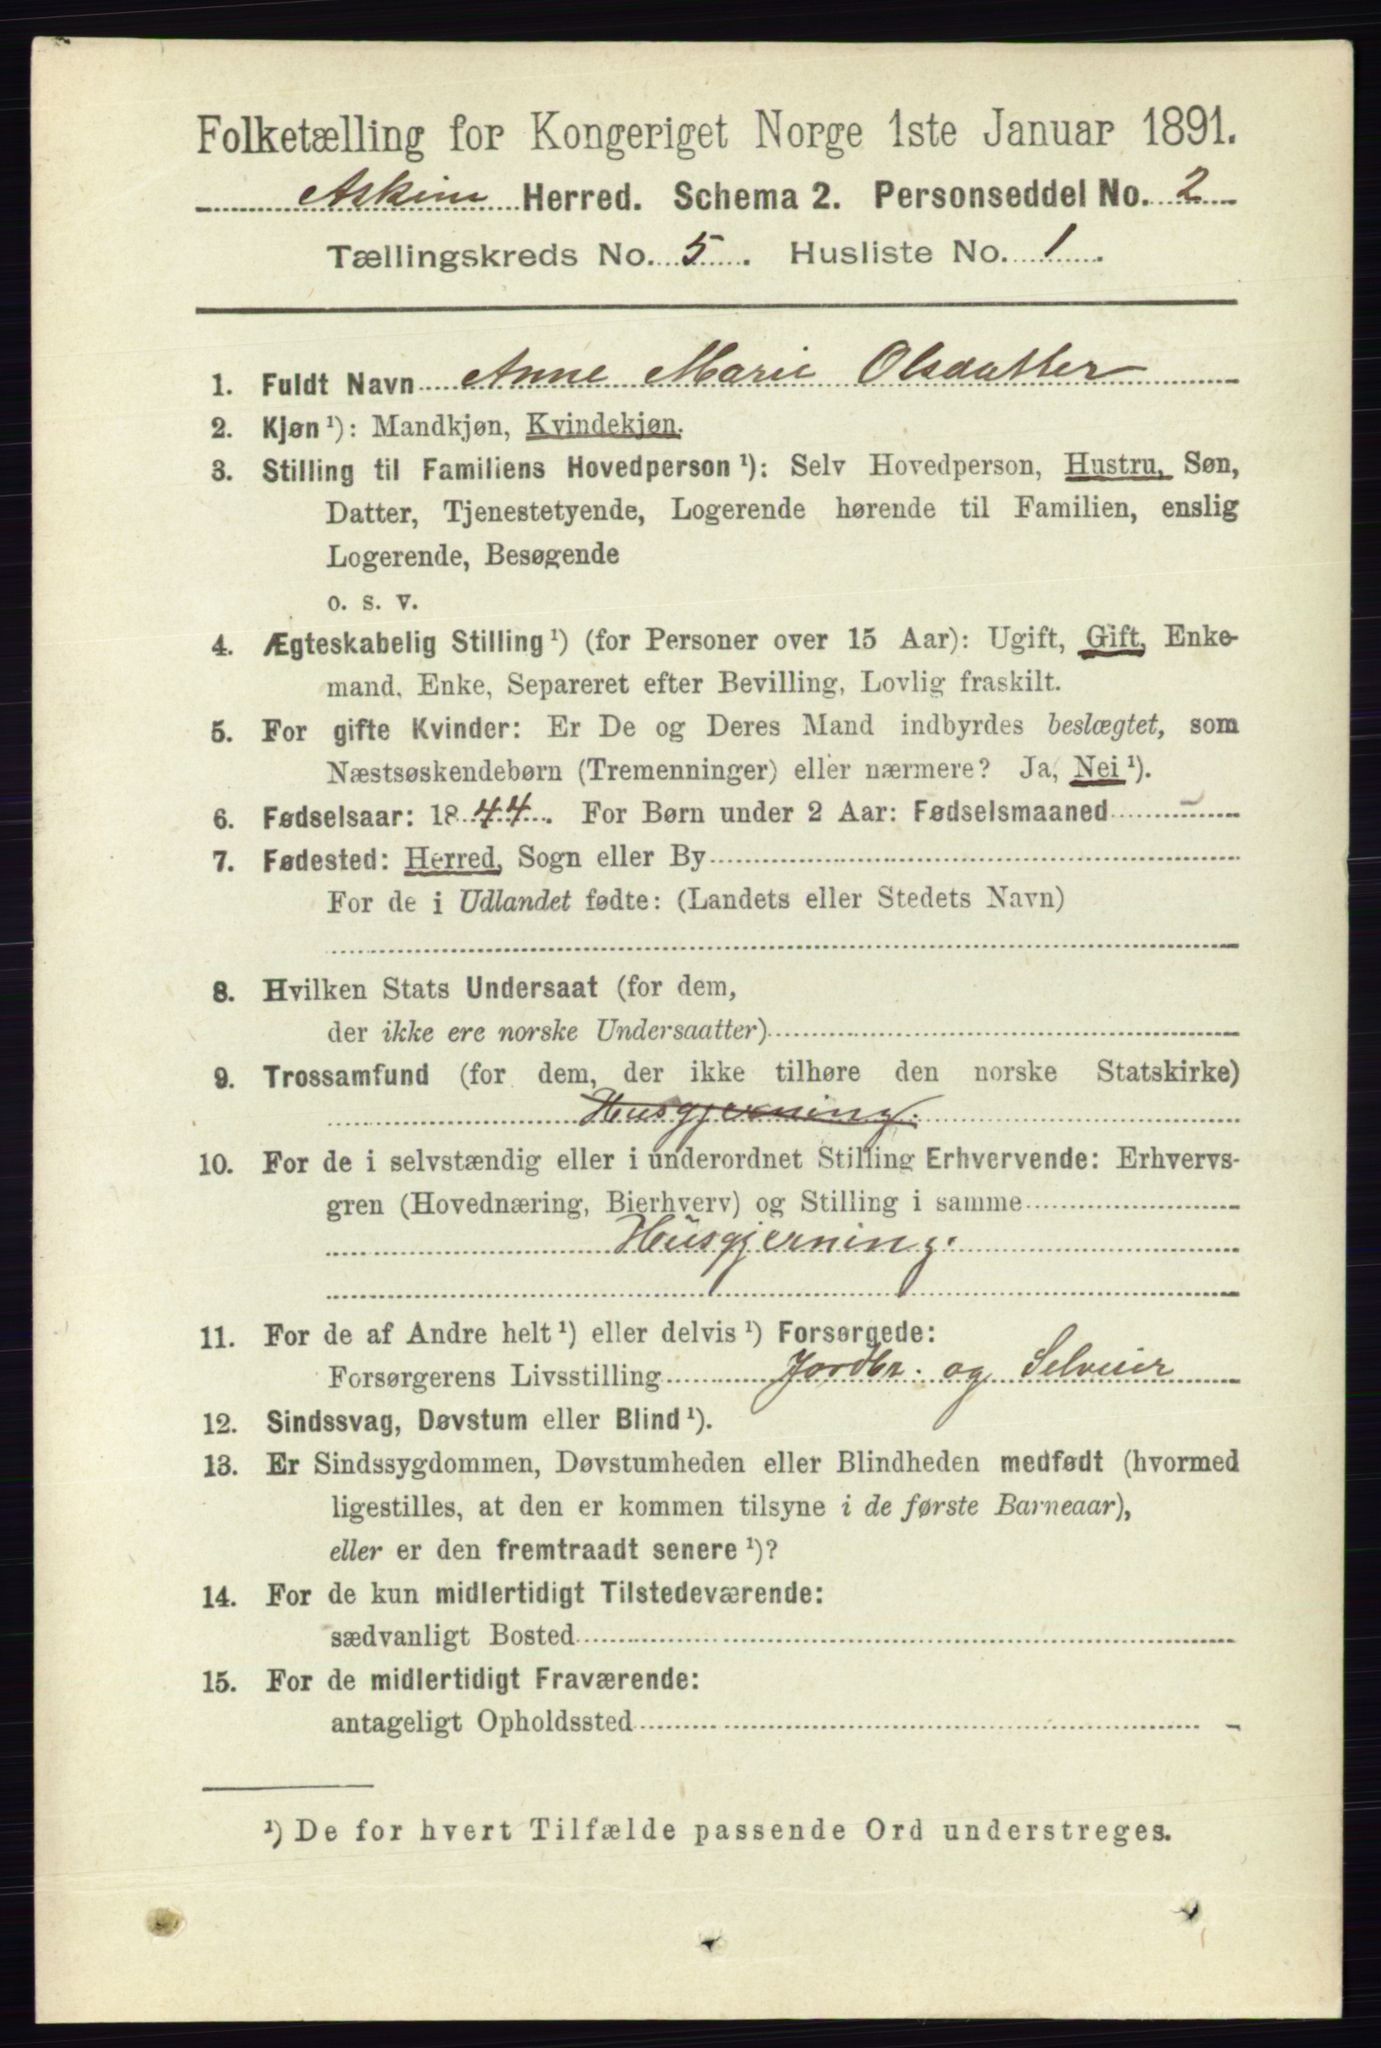 Folketælling for Kongeriget Norge 1ste Januar 1891.
Askim Herred. Schema 2. Personseddel No. 2
Tællingskreds No. 5. Husliste No. 1.
1. Fuldt Navn Anne Marie Olsdatter
2. Kjøn ¹): Mandkjøn, Kvindekjøn.
3. Stilling til Familiens Hovedperson ¹): Selv Hovedperson, Hustru, Søn,
Datter, Tjenestetyende, Logerende hørende til Familien, enslig
Logerende, Besøgende
o. s. v.
4. Ægteskabelig Stilling ¹) (for Personer over 15 Aar): Ugift, Gift, Enke-
mand, Enke, Separeret efter Bevilling, Lovlig fraskilt.
5. For gifte Kvinder: Er De og Deres Mand indbyrdes beslægtet, som
Næstsøskendebørn (Tremenninger) eller nærmere? Ja, Nei ¹).
6. Fødselsaar: 1844. For Børn under 2 Aar: Fødselsmaaned -
7. Fødested: Herred, Sogn eller By
For de i Udlandet fødte: (Landets eller Stedets Navn)
8. Hvilken Stats Undersaat (for dem,
der ikke ere norske Undersaatter)
9. Trossamfund (for dem, der ikke tilhøre den norske Statskirke)
Husgjerning.
10. For de i selvstændig eller i underordnet Stilling Erhvervende: Erhvervs-
gren (Hovednæring, Bierhverv) og Stilling i samme
Husgjerning.
11. For de af Andre helt ¹) eller delvis ¹) Forsørgede:
Forsørgerens Livsstilling Jordbr. og Selveier
12. Sindssvag, Døvstum eller Blind ¹).
13. Er Sindssygdommen, Døvstumheden eller Blindheden medfødt (hvormed
ligestilles, at den er kommen tilsyne i de første Barneaar),
eller er den fremtraadt senere ¹)?
14. For de kun midlertidigt Tilstedeværende:
sædvanligt Bosted
15. For de midlertidigt Fraværende:
antageligt Opholdssted
¹) De for hvert Tilfælde passende Ord understreges.